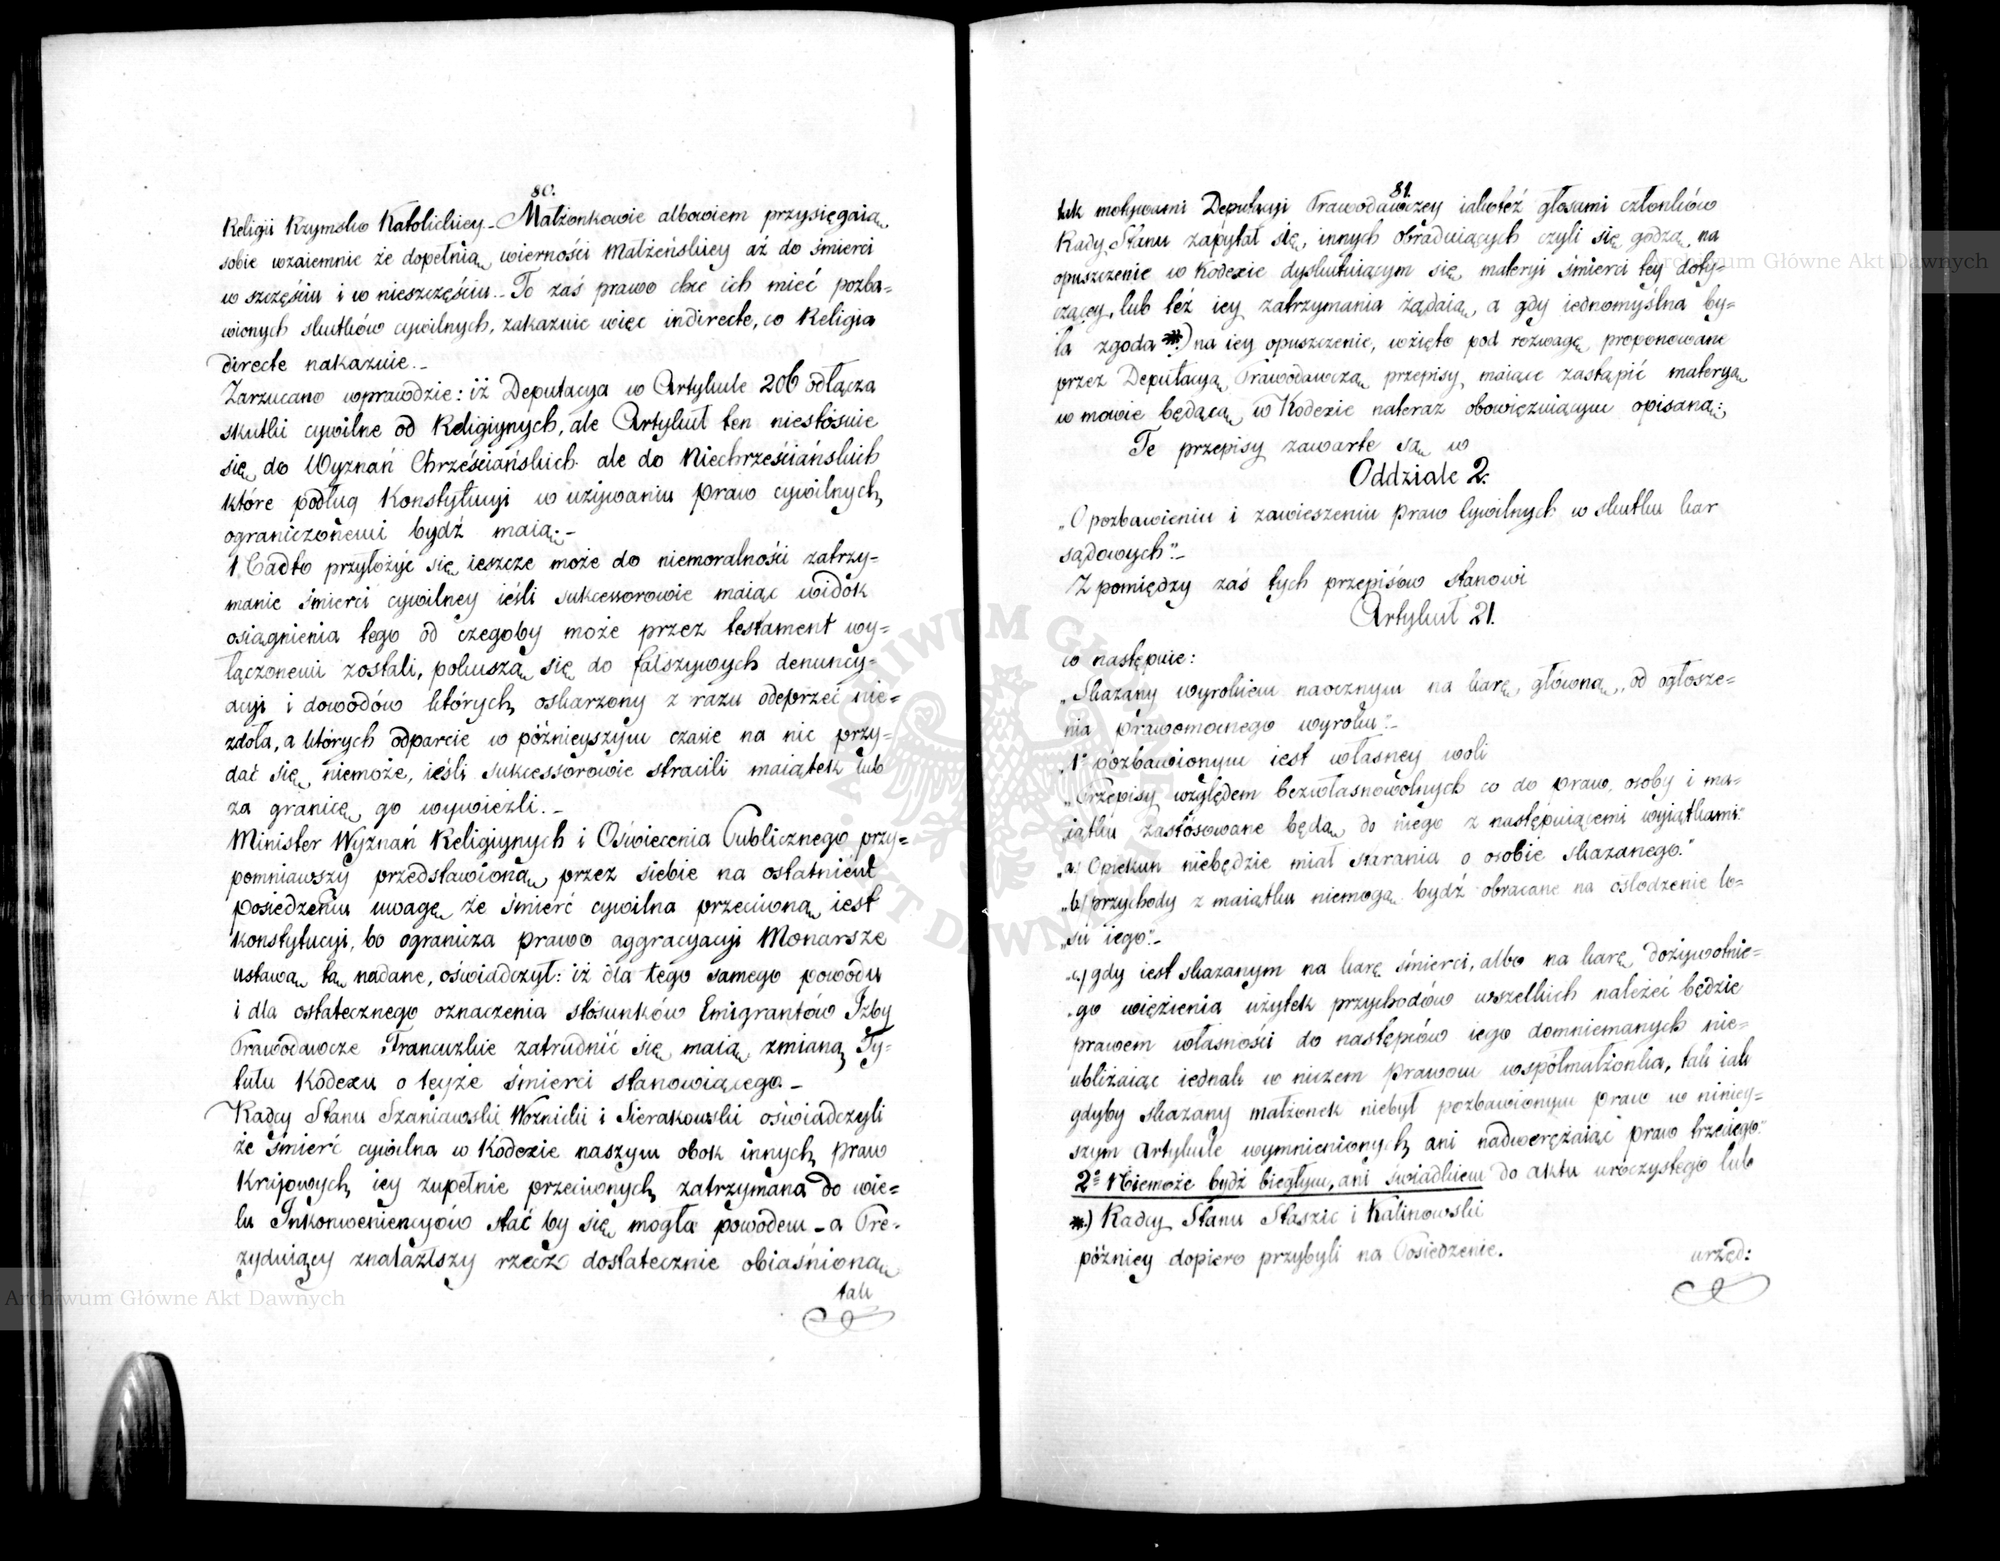 80.
Religii Rzymsko Katolickiey_ Małżonkowie albowiem przysięgaią
sobie wzaiemnie że dopełnią wierności Małżeńskiey aż do śmierci
w szczęściu i w nieszczęściu._ To zaś prawo chce ich mieć pozba=
wionych skutków cywilnych, zakazuie więc indirecte, co Religia
directe nakazuie._
Zarzucano wprawdzie: iż Deputacya w Artykule 206 odłącza
skutki cywilne od Religiynych, ale Artykuł ten niestósuie
się do Wyznań Chrześciańskich ale do Niechrześciańskich
które podług Konstytucyi w używaniu praw cywilnych
ograniczonemi bydź maią._
Nadto przyłożyć się ieszcze może do niemoralności zatrzy=
manie śmierci cywilney ieśli sukcessorowie maiąc widok
osiągnienia tego od czegoby może przez testament wy=
łączonemi zostali, pokuszą się do fałszywych denuncy=
acyi i dowodów których oskarzony z razu odeprzeć nie=
zdoła, a których odparcie w późnieyszym czasie na nic przy=
dać się niemoże, ieśli sukcessorowie stracili maiątek lub
za granicę go wywieźli._
Minister Wyznań Religiynych i Oświecenia Publicznego przy=
pomniawszy przedstawioną przez siebie na ostatniém
posiedzeniu uwagę że śmierć cywilna przeciwną iest
Konstytucyi, bo ogranicza prawo aggracyacyi Monarsze
ustawą tą nadane, oświadczył: iż dla tego samego powodu
i dla ostatecznego oznaczenia stósunków Emigrantów Izby
Prawodawcze Francuzkie zatrudnić się maią zmianą Ty=
tułu Kodexu o teyże śmierci stanowiącego_
Radcy Stanu Szaniawski Woźnicki i Sierakowski oświadczyli
że śmierć cywilna w Kodexie naszym obok innych praw
Kraiowych iey zupełnie przeciwnych zatrzymana do wie=
lu Inkonweniencyów stać by się mogła powodem_ a Pre=
zyduiący znalazłszy rzecz dostatecznie obiaśnioną
tak
81.
tak motywami Deputacyi Prawodawczey iakoteż głosami członków
Rady Stanu zapytał się innych obraduiących czyli się godzą na
opuszczenie w Kodexie dyskutuiącym się materyi śmierci tey doty=
czącey, lub też iey zatrzymania żądaią, a gdy iednomyślna by=
ła zgoda *) na iey opuszczenie, wzięto pod rozwagę proponowane
przez Deputacyą Prawodawczą przepisy, maiące zastąpić materyą
w mowie będącą w Kodexie nateraz obowięzuiącym opisaną:
Te przepisy zawarte są w
Oddziale 2.
„O pozbawieniu i zawieszeniu praw Cywilnych w skutku kar
sądowych"._
Z pomiędzy zaś tych przepisów stanowi
Artykuł 21.
co następuie:
„Skazany wyrokiem naocznym na karę główną, od ogłosze=
nia prawomocnego wyroku"._
„1º pozbawionym iest własney woli
„Przepisy względem bezwłasnowolnych co do praw, osoby i ma=
iątku zastósowane będą do niego z następuiącemi wyiątkami:"
„a/ Opiekun niebędzie miał starania o osobie skazanego."
„b/ przychody z maiątku niemogą bydź obracane na osłodzenie lo=
„su iego"._
„c/ gdy iest skazanym na karę śmierci, albo na karę dożywotnie=
„go więzienia użytek przychodów wszelkich należeć będzie
prawem własności do następców iego domniemanych nie=
ubliżaiąc iednak w niczem prawom współmałżonka, tak iak
gdyby skazany małżonek niebył pozbawionym praw w niniey=
szym Artykule wymienionych ani nadwerężaiąc praw trzeciego."
2º Niemoże bydź biegłym, ani świadkiem do aktu uroczystego lub
*) Radcy Stanu Staszic i Kalinowski
późniey dopiero przybyli na Posiedzenie.
urzęd:
Archiwum Główne Akt Dawnych
Archiwum Główne Akt Dawnych
ARCHIWUM GŁÓWNE AKT DAWNYCH